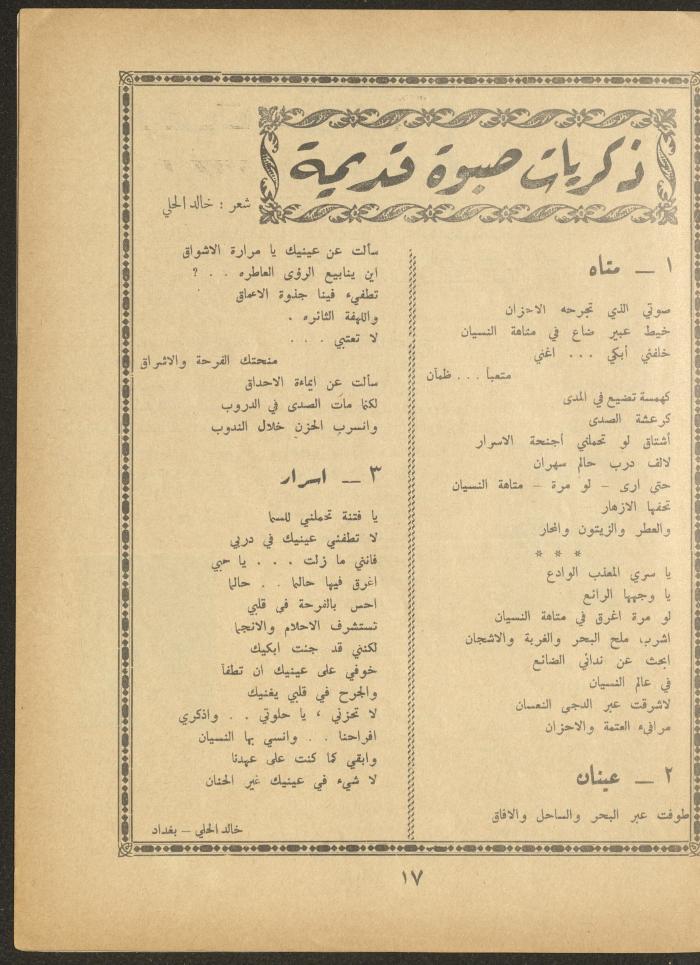 ذكريات صبوة قديمة
شعر : خالد الحلي
١ — متاه
صوتي الذي تجرحه الاحزان
خيط عبير ضاع في متاهة النسيان
خلفني أبكي . . . اغني
متعبا . . . ظمآن
كهمسة تضيع في المدى
كرعشة الصدى
أشتاق لو تحملني أجنحة الاسرار
لالف درب حالم سهران
حتى ارى – لو مرة – متاهة النسيان
تحفها الازهار
والعطر والزيتون والمحار
* * *
يا سري المعذب الوادع
يا وجهها الرائع
لو مرة اغرق في متاهة النسيان
اشرب ملح البحر والغربة والاشجان
ابحث عن ندائي الضائع
في عالم النسيان
لاشرقت عبر الدجى النعسان
مرافيء العتمة والاحزان
٢ — عينان
طوفت عبر البحر والساحل والافاق
سألت عن عينيك يا مرارة الاشواق
اين ينابيع الرؤى العاطره . . ؟
تطفيء فينا جذوة الاعماق
واللهفة الثائره .
لا تعتبي . . . .
منحتك الفرحة والاشراق
سألت عن ايماءة الاحداق
لكنما مات الصدى في الدروب
وانسرب الحزن خلال الندوب
٣ — اسرار
يا فتنة تحملني للسما
لا تطفئي عينيك في دربي
فانني ما زلت . . . يا حبي
اغرق فيها حالما . . حالما
احس بالفرحة في قلبي
تستشرف الاحلام والانجما
لكنني قد جئت ابكيك
خوفي على عينيك ان تطفأ
والجرح في قلبي يغنيك
لا تحزني ، يا حلوتي . . واذكري
افراحنا . . وانسي بها النسيان
وابقي كما كنت على عهدنا
لا شيء في عينيك غير الحنان
خالد الحلي – بغداد
١٧